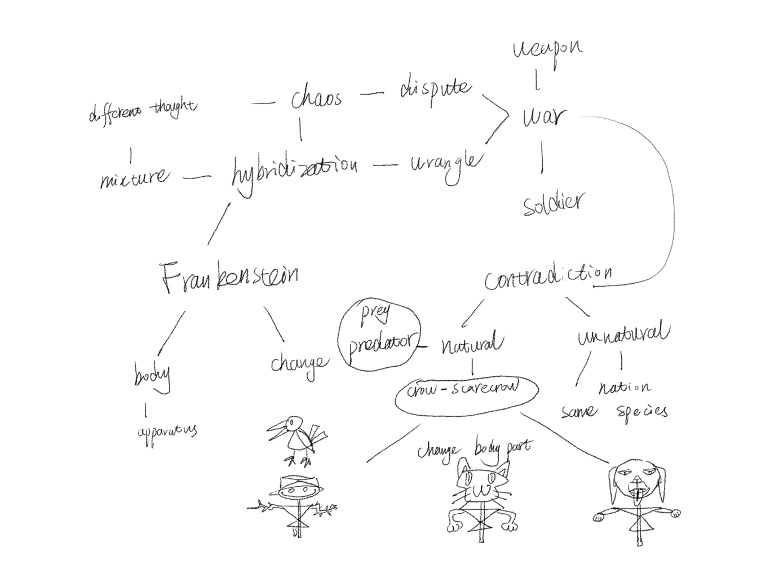 weapon
chaos — dispute
different thought
war
mixture — hybridization — wrangle
soldier
Frankenstein
contradiction
prey
predator
natural
unnatural
body
change
crow - scarecrow
nation
same species
apparatus
change body part